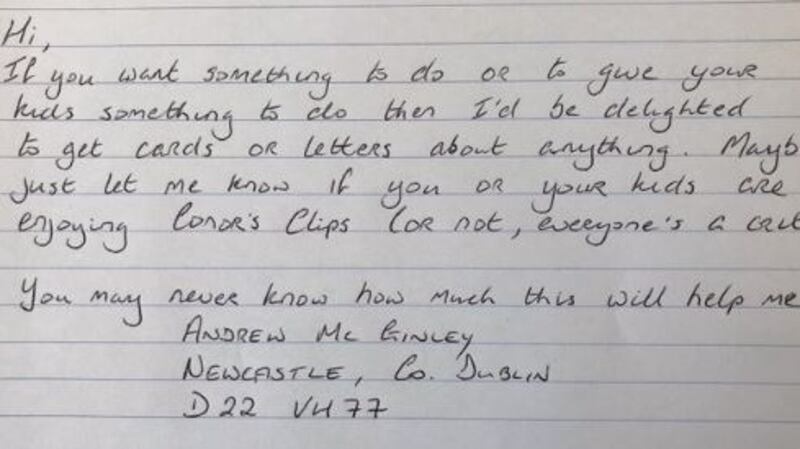 Hi,
If you want something to do or to give your
kids something to do then I'd be delighted
to get cards or letters about anything. Mayb
just let me know if you or your kids are
enjoying Conor's Clips (or not, everyone's a crit
You may never know how much this will help me
ANDREW Mc GINLEY
NEWCASTLE, Co. DUBLIN
D22 VH77